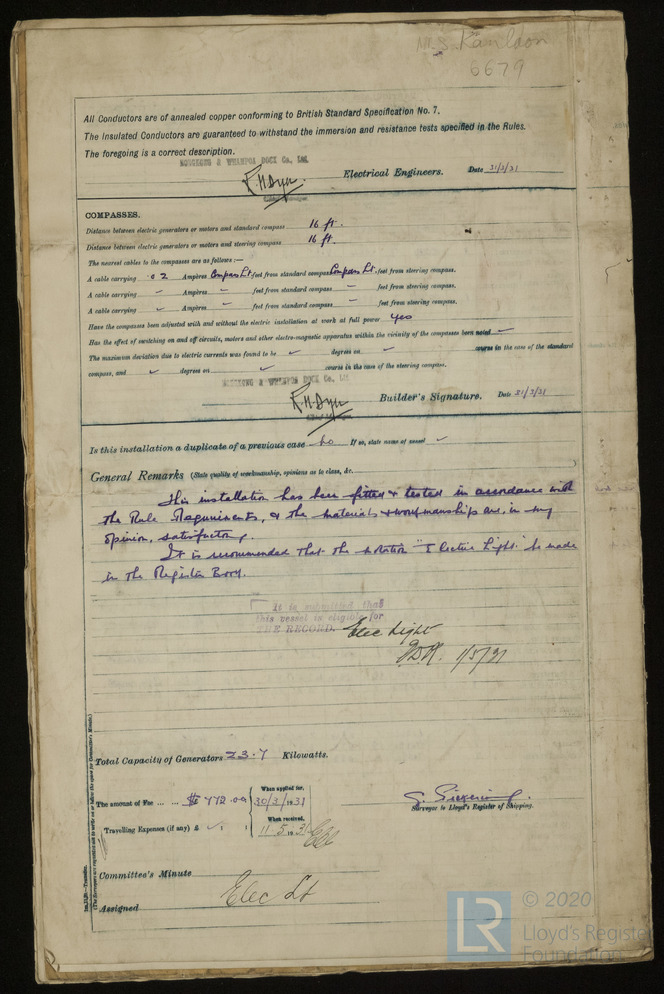 M.S. Kawlaon
6679
All Conductors are of annealed copper conforming to British Standard Specification No. 7.
The Insulated Conductors are guaranteed to withstand the immersion and resistance tests specified in the Rules.
The foregoing is a correct description.
HONGKONG & WHAMPOA DOCK Co., Ltd.
Electrical Engineers. Date 31/3/31
Chief Manager
COMPASSES.
Distance between electric generators or motors and standard compass 16 ft.
Distance between electric generators or motors and steering compass 16 ft.
The nearest cables to the compasses are as follows:—
A cable carrying .02 Ampères Compass Lt feet from standard compass Compass Lt. feet from steering compass.
A cable carrying – Ampères – feet from standard compass – feet from steering compass.
A cable carrying – Ampères – feet from standard compass – feet from steering compass.
Have the compasses been adjusted with and without the electric installation at work at full power yes
Has the effect of switching on and off circuits, motors and other electro-magnetic apparatus within the vicinity of the compasses been noted ✓
The maximum deviation due to electric currents was found to be ✓ degrees on ✓ course in the case of the standard
compass, and ✓ degrees on ✓ course in the case of the steering compass.
HONGKONG & WHAMPOA DOCK Co., Ltd
Builder's Signature. Date 31/3/31
Chief Manager
Is this installation a duplicate of a previous case No If so, state name of vessel ✓
General Remarks (State quality of workmanship, opinions as to class, &c.
This installation has been fitted & tested in accordance with
the Rule Requirements, & the materials & workmanships are, in my
opinion, satisfactory.
It is recommended that the notation "Electric Light" be made
in the Register Book.
It is submitted that
this vessel is eligible for
THE RECORD. Elec Light
1/5/31
Total Capacity of Generators 23.7 Kilowatts.
The amount of Fee ... ... $ 772.00
When applied for,
30/3/1931
When received,
Travelling Expenses (if any) £ ✓ :
11.5.1931
S. Pickering.
Surveyor to Lloyd's Register of Shipping.
Committee's Minute
Assigned Elec Lt
Im.11.29.—Transfer.
(The Surveyors are requested not to write on or below the space for Committee's Minute.)
LR
© 2020
Lloyd's Register
Foundation